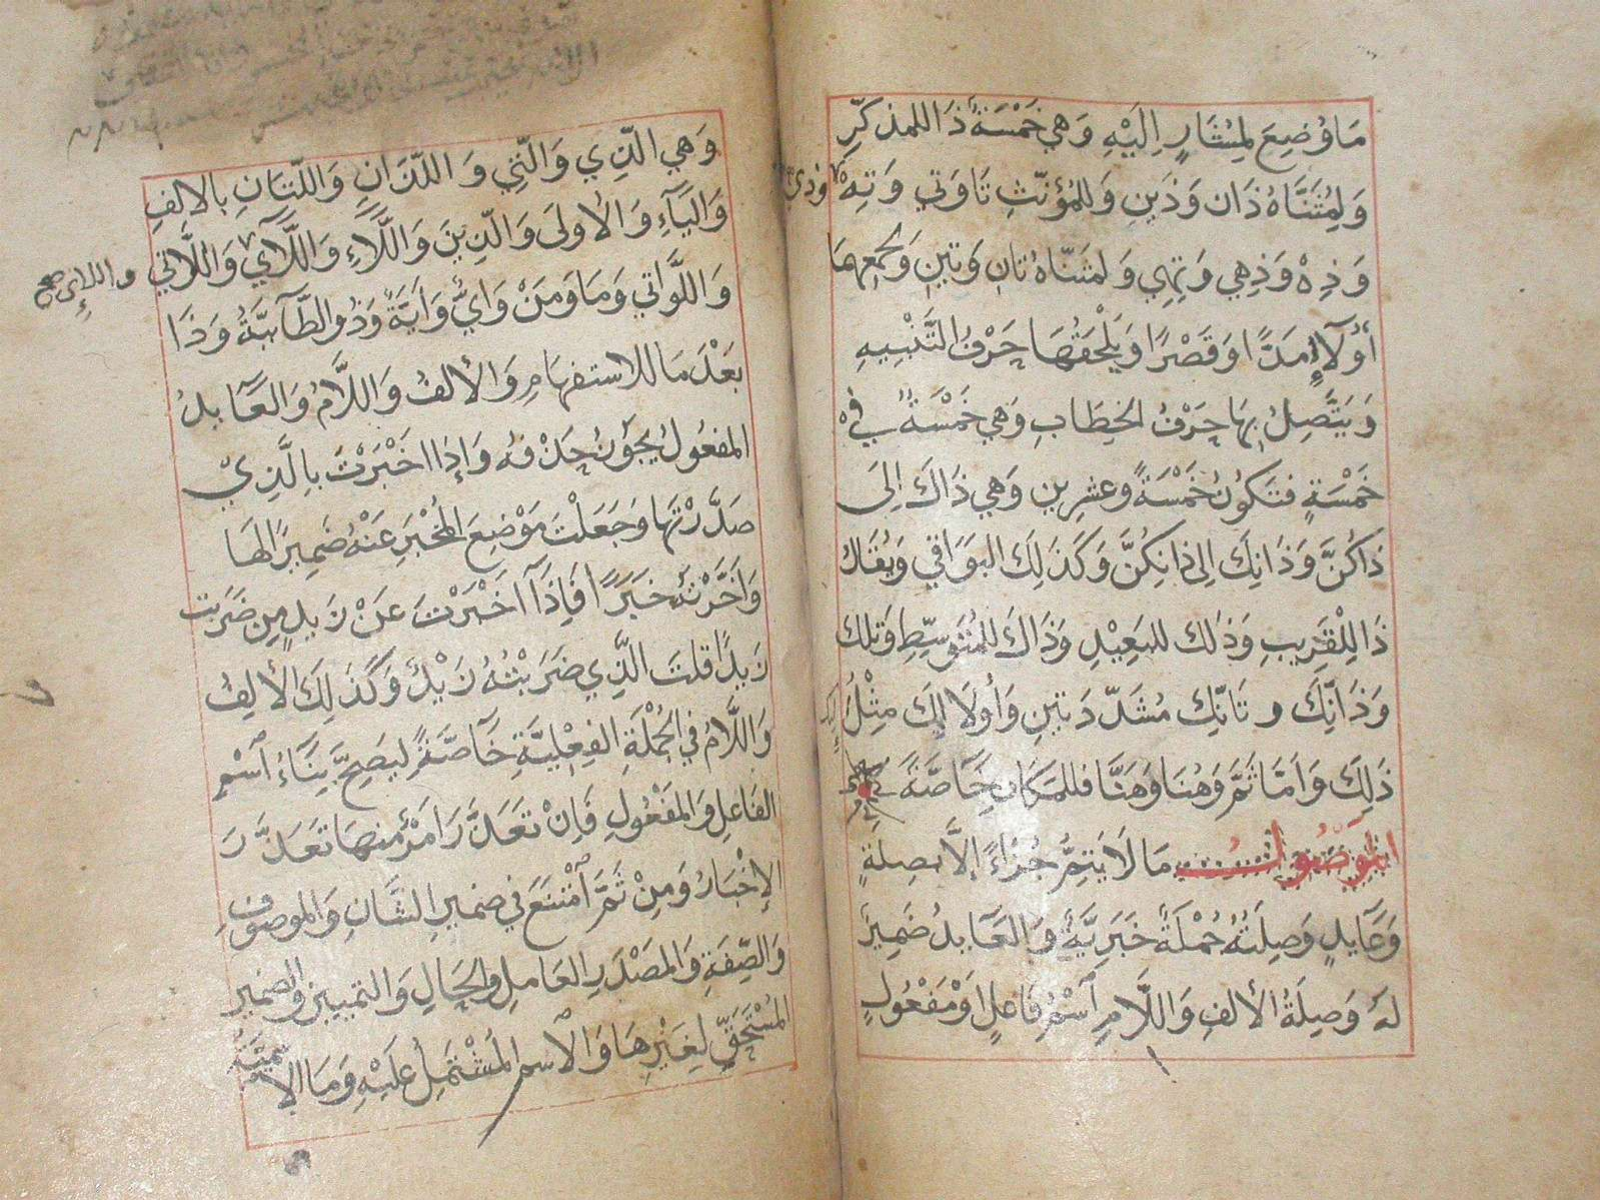 مَا وُضِعَ لِمُشَارٍ اِلَيْهِ وَهِيَ خَمْسَةٌ ذَا للمذكرِّ
وَلِمُثَنَّاهُ ذَان وَذَينِ وَللمُؤنّثِ تَا وَتي وَتِهْ وَذِي
وَذِهْ وَذِهِي وَتِهِي وَلمثنّاهُ تانِ وَتينِ وَلجمعِهِمَا
أُولَآءِ مَدًّا وَقَصْرًا وَيَلْحَقُهَا حَرْفُ التَّنْبِيهِ
وَيَتَّصِلُ بِهَا حَرْفُ الخِطَابِ وَهِيَ خَمْسَةٌ فِيْ
خَمْسَةٍ فتَكُونُ خَمْسَةً وعشرِين وَهِيَ ذَاكَ اِلىَ
ذَاكُنَّ وَذَانِكَ اِلى ذانِكُنَّ وَكَذَلِكَ البَوَاقي وَيُقَالُ
ذَا لِلْقَرِيبِ وَذٰلك للبَعِيْدِ وَذَاكَ للمُتَوسِّطِ وَتلك
وَذَانِّكَ وتَانِّكَ مُشَدّدَتينِ وَأُولَالِكَ مِثْلُ
ذَلِكَ وَاَمَّا ثَمَّ وَهُنَا وَهَنَّا فللمَكَانِ خَاصَّةً
الموَصُولُ مَا لَا يَتِمُّ جُزْءًا إِلاَّ بصِلَةٍ
وَعَآيدٍ وَصِلَتُهُ جُمْلَةٌ خَبَرِيَّةٌ وَالعَآيدُ ضَمِيرٌ
لَهُ وَصِلَةُ الألفِ وَاللَّامِ اَسْمُ فَاعلٍ اَوْ مَفْعُولٍ
وَهِيَ الَّذِي وَالَّتِي وَاللَّذَانِ وَاللَّتَانِ بالالفِ
وَاليَآءِ وَالأولىَ وَالَّذِينَ وَاللَّاءِ وَاللَّآي وَاللَّاتي
واللاي صح
وَاللَّوَاتي وَمَا وَمَنْ وَايٌّ وَاَيَّةٌ وَذُو الطَّآئيَّةُ وَذَا
بَعْدَ مَا للاستفهامِ وَالألفُ وَاللَّامُ وَالعَآيدُ
المفعُولُ يجَوُزُ حَذْفُهُ وَاِذَا اخْبَرْتَ بِالَّذِيْ
صَدَّرْتَهَا وَجَعَلْتَ مَوْضِعَ المُخْبَرِ عَنْهُ ضَمِيرًا لهَا
وَاَخَّرْتَهُ خَبَرًا فَاِذَآ اخْبَرْتَ عَنْ زَيدٍ مِن ضَرَبت
زَيدًا قلتَ الَّذِي ضَرَبْتُهُ زَيْدٌ وَكَذَلِكَ الألِفُ
وَاللَّامُ في الجُمْلَةِ الفِعْلِيَّةِ خَآصَّةً لِيَصِحَّ بِنَاءُ اَسْم
الفَاعلِ وَالمَفْعُولِ فَاِنْ تعَذَّرَ اَمْرٌ منهَا تعَذَّرَ
الإخْبَارُ وَمِنْ ثَمَّ اَمْتَنَعَ في ضميرِ الشَّانِ وَالموصوفِ
وَالصِّفَةِ وَالمَصْدَرِ العَاملِ وَالحَالِ وَالتمييز والضمير
المُسْتَحَقِّ لِغَيْرِهَا وَالاسمِ المُشْتَمِلِ عَلَيْهِ وَمَا الاسْميَّةُ